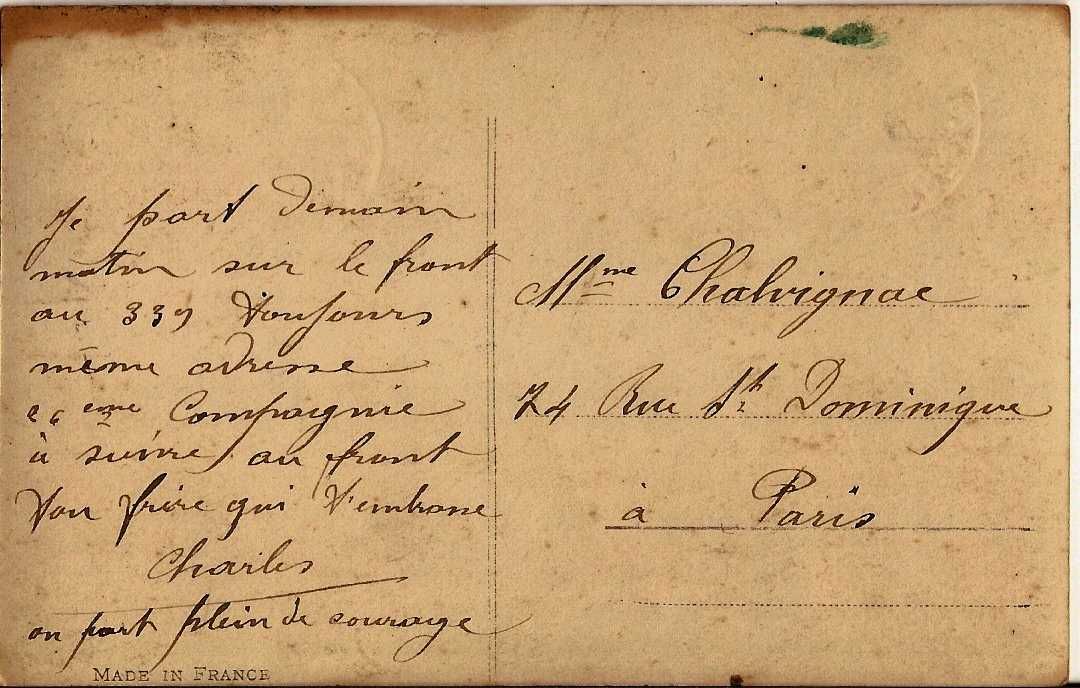 Je part demain
matin sur le front
au 339 toujours
même adresse
eme Compagnie
à suivre au front
Ton frère qui t'embrasse
Charles
on part plein de courage
MADE IN FRANCE
Mme Chalvignac
74 Rue St Dominique
à Paris